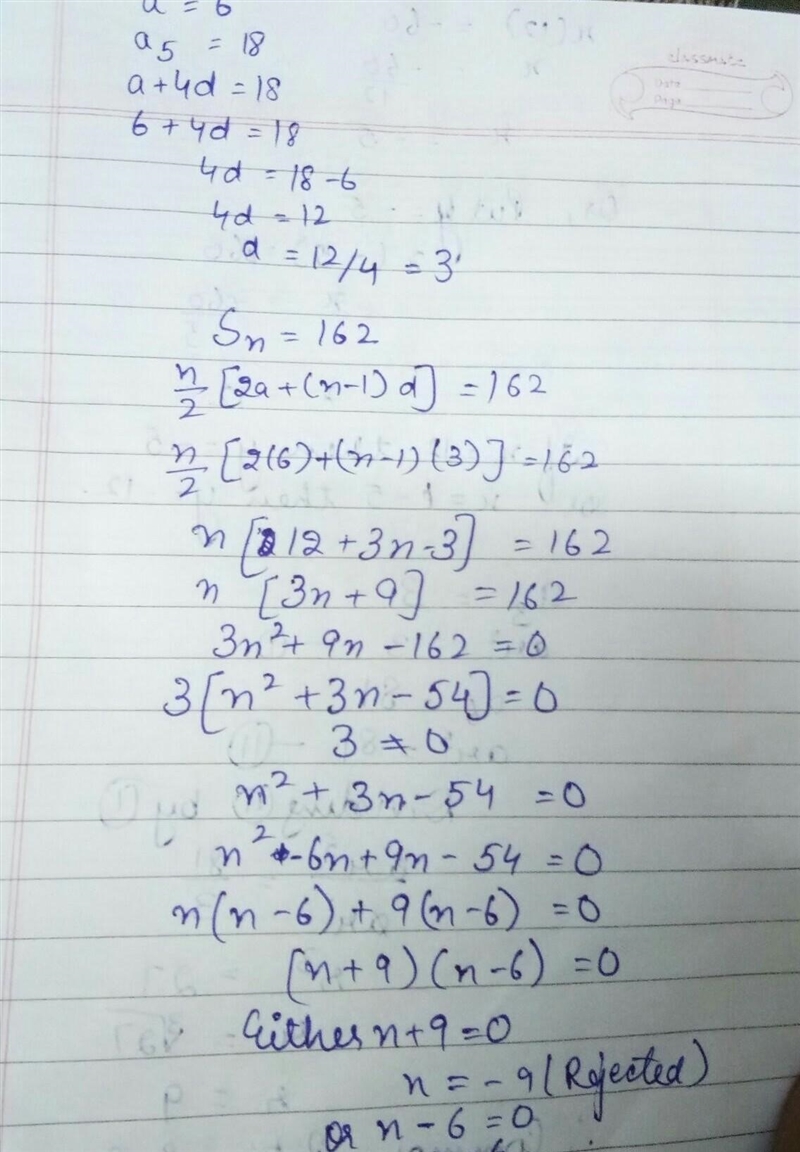 a = 6
a5 = 18
a+4d = 18
6 + 4d = 18
4d = 18-6
4d = 12
d = 12/4 = 3
Sn = 162
n/2 [2a+(n-1) d] = 162
n/2 [2(6)+(n-1)(3)] = 162
n [12 + 3n-3] = 162
n [3n + 9] = 162
3n² + 9n - 162 = 0
3[n² + 3n - 54] = 0
3 ≠ 0
n² + 3n - 54 = 0
n² -6n + 9n - 54 = 0
n(n-6) + 9(n-6) = 0
(n+9)(n-6) = 0
Either n+9=0
n = -9 (Rejected)
or n-6 = 0
classmate
Date
Page